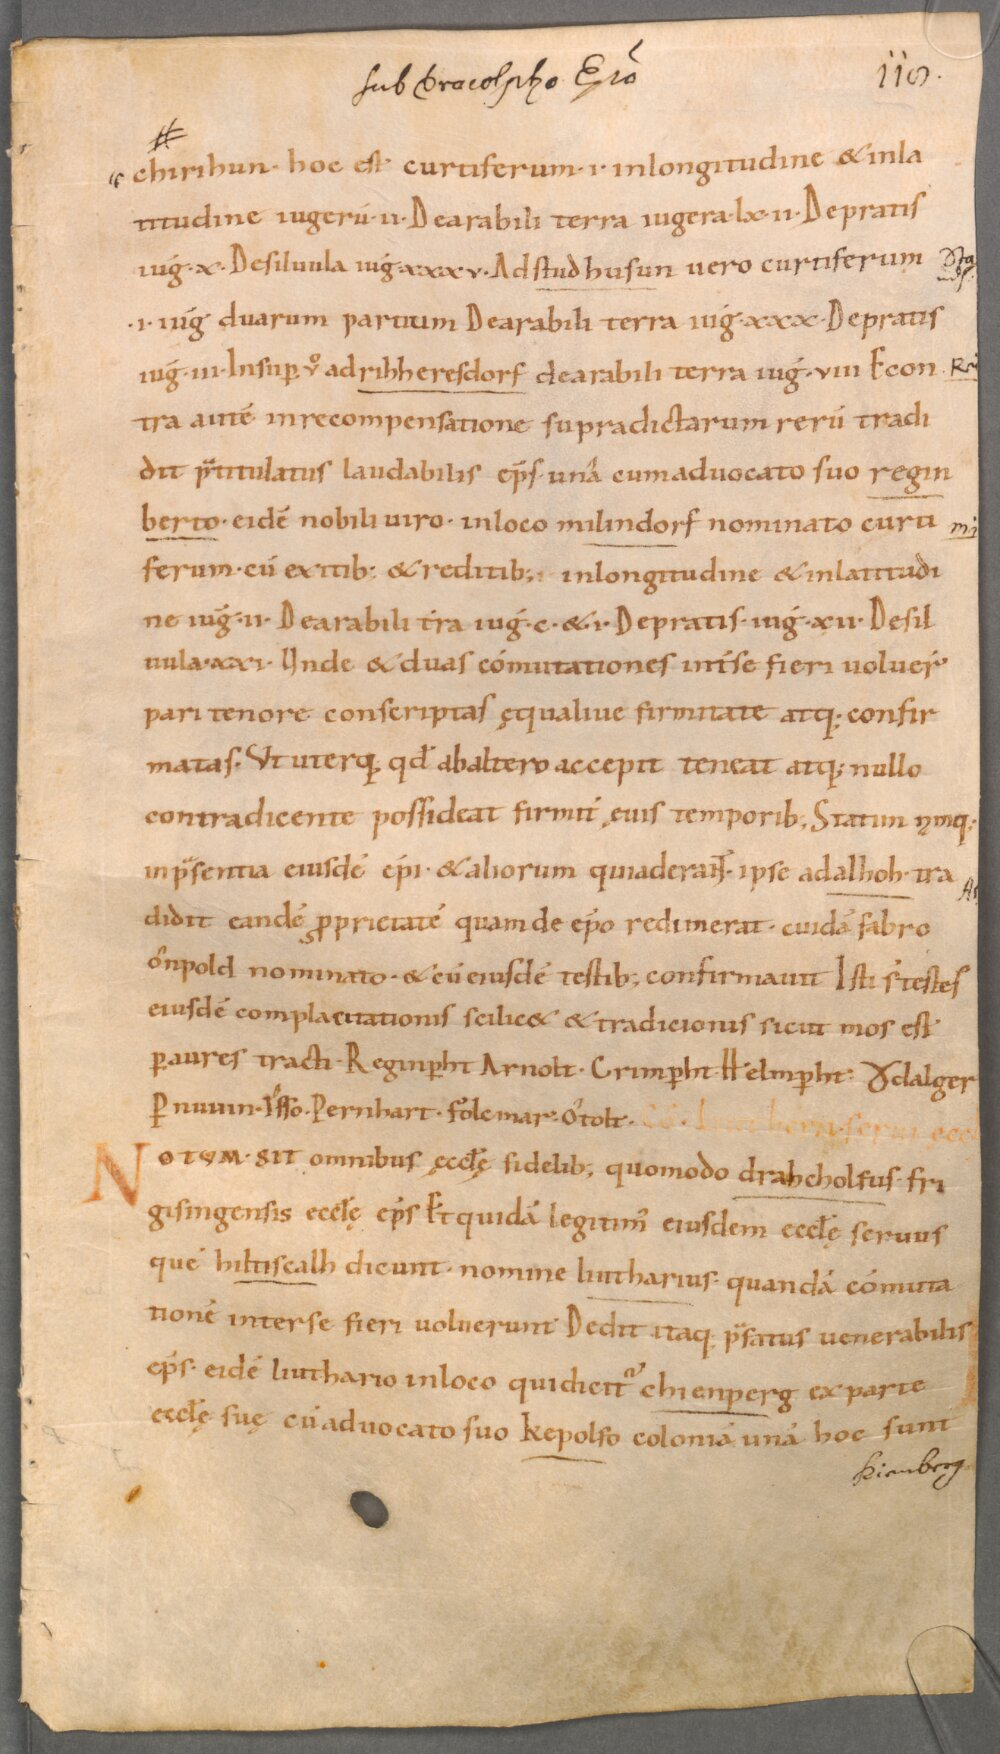 sub Dracolpho Epo
116.
chirihun · hoc est curtiferum · i · inlongitudine & inla
titudine iugerū · ii · Dearabili terra iugera · lx · ii · Depratis
iuḡ · x · Desiluula iuḡ · xxxv · Adstudhusun uero curtiferum
· i · iuḡ duarum partium Dearabili terra iuḡ · xxx · Depratis
iuḡ · iii · Insup̄ v̊ ad rihheresdorf dearabili terra iuḡ · viii Econ
tra autē inrecompensatione supradictarum rerū tradi
dit p̄titulatus laudabilis ep̄s · unā cumaduocato suo regin
berto · eidē nobili uiro · inloco milindorf nominato curti
ferum · cū exitib; & reditib; inlongitudine & inlatitudi
ne iuḡ · ii · Dearabili t̄ra iuḡ · c · & · i · Depratis · iuḡ · xii · Desil
uula · xxi · Unde & duas cōmutationes int̄se fieri uoluer̄
pari tenore conscriptas ęqualiue firmitate atq; confir
matas · Ut uterq; qd̄ abaltero accepit teneat atq; nullo
contradicente possideat firmit̄ ęuis temporib; Statim nmq;
inp̄sentia eiusdē ep̄i · & aliorum quiaderant · ipse adalhoh · tra
didit eandē ꝓprietatē quam de ep̄o redimerat · cuidā fabro
ônpold nominato · & cū eiusdē testib; confirmauit Isti s̄ testes
eiusdē complacitationis scilic& & tradicionis sicut mos est
ꝑaures tracti · Reginꝑht Arnolt · Crimꝑht · Helmꝑht · Odalger
Ꝑnuuin · Iffo · Pernhart · folcmar · ôtolt ·
NOTUM · SIT omnibus ęccłę fidelib; quomodo draheholfus · fri
gisingensis eccłę ep̄s Et quidā legitim᷒ eiusdem eccłę seruus
quē hiltiscalh dicunt · nomine liutharius · quandā cōmuta
tionē interse fieri uoluerunt Dedit itaq; p̄fatus uenerabilis
ep̄s · eidē liuthario inloco quidicit᷑ chienperg ex parte
eccłę suę cū aduocato suo kepolfo coloniā unā hoc sunt
kienberg